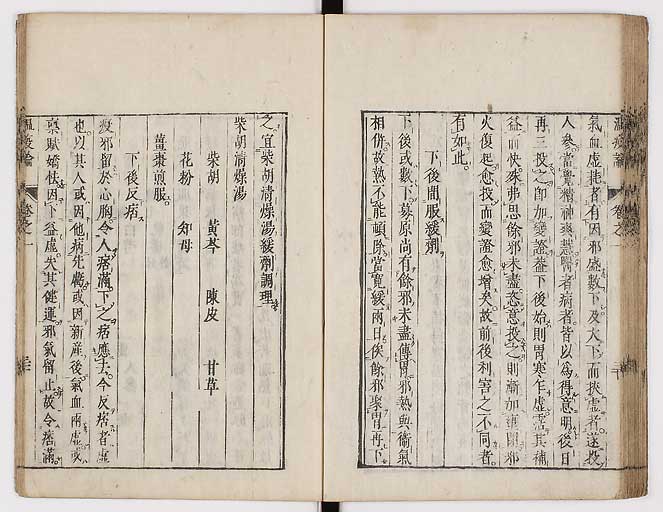 氣血虛耗者有因邪盛數下及大下而挾虛者遂投
人參當覺精神爽慧醫者病者皆以爲得意明後日
再三投之即加變證蓋下後始則胃寒乍虛霑其補
益而快殊弗思餘邪未盡恣意投之則漸加壅閉邪
火復起愈投而變證愈增矣故前後利害之不同者
有如此
下後間服緩劑
下後或數下募原尚有餘邪未盡傳胃邪熱與衛氣
相併故熱不能頓除當寬緩兩日俟餘邪聚胃再下
之宜柴胡清燥湯緩劑調理
柴胡清燥湯
柴胡 黃芩 陳皮 甘草
花粉 知母
薑棗煎服
下後反痞
疫邪留於心胸令人痞滿下之痞應去今反痞者虛
也以其人或因他病先虧或因新產後氣血兩虛或
稟賦嬌怯因下益虛失其健運邪氣留止故令痞滿
溫疫論 卷之一